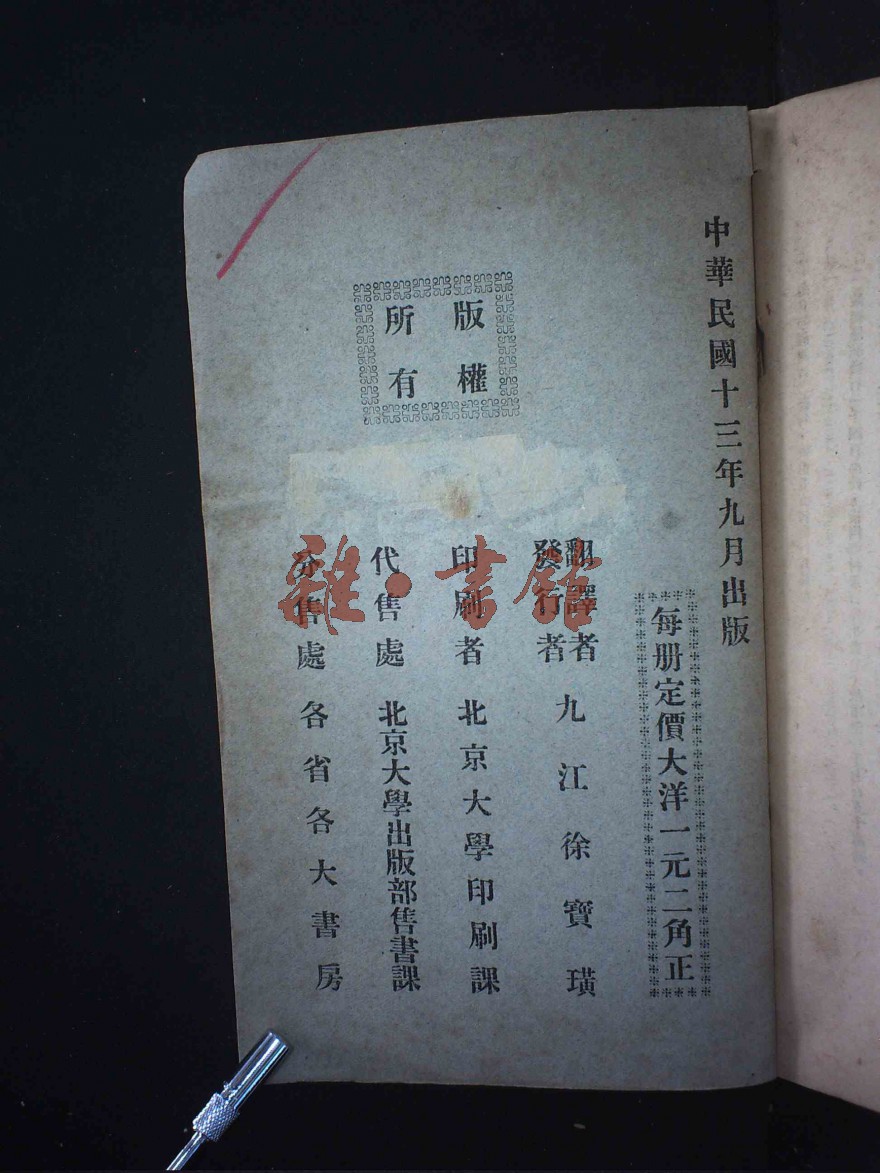 中華民國十三年九月出版
每册定價大洋一元二角正
版權
所有
翻譯者
發行者
九江徐寶璜
印刷者 北京大學印刷課
代售處 北京大學出版部售書課
分售處 各省各大書房
雜·書館